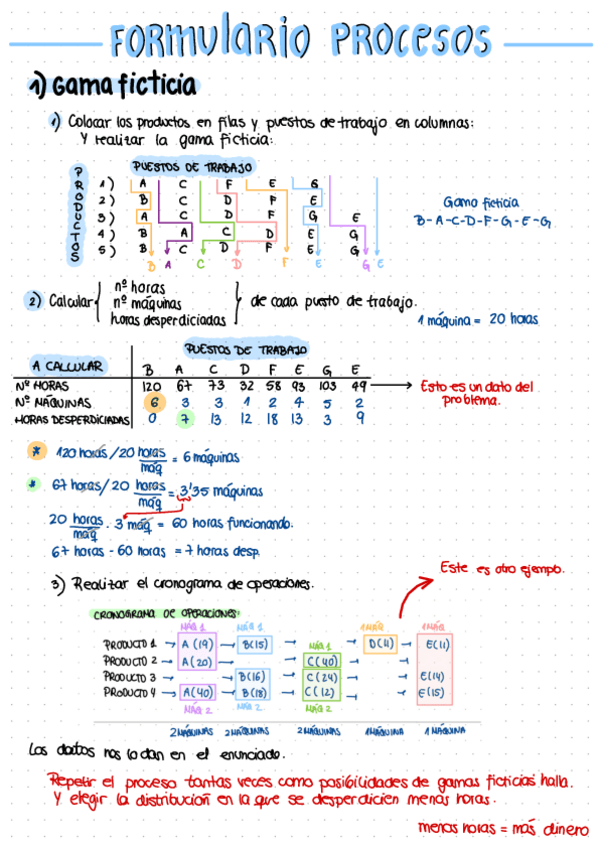 FORMULARIO PROCESOS
1) Gama ficticia
1) Colocar los productos en filas y puestos de trabajo en columnas:
Y realizar la gama ficticia:
PRODUCTOS
PUESTOS DE TRABAJO
1) A C F E G
2) B D F E
3) A C D F G E
4) B A C D E G
5) B C D F E G
B A C D F E G E
Gama ficticia
B-A-C-D-F-G-E-G
2) Calcular { nº horas
nº máquinas
horas desperdiciadas } de cada puesto de trabajo.
1 máquina = 20 horas
PUESTOS DE TRABAJO
A CALCULAR B A C D F E G E
Nº HORAS 120 67 73 32 58 93 103 49 → Esto es un dato del problema.
Nº MÁQUINAS 6 3 3 1 2 4 5 2
HORAS DESPERDICIADAS 0 7 13 12 18 13 3 9
* 120 horas/20 horas/máq = 6 máquinas
* 67 horas/20 horas/máq = 3'35 máquinas
20 horas/máq · 3 máq = 60 horas funcionando.
67 horas - 60 horas = 7 horas desp.
3) Realizar el cronograma de operaciones.
Este es otro ejempo.
CRONOGRAMA DE OPERACIONES:
MÁQ 1 MÁQ 1 MÁQ 1 1 MÁQ 1 MÁQ
PRODUCTO 1 → A(19) → B(15) → → D(11) → E(11)
PRODUCTO 2 → A(20) → → C(40) → →
PRODUCTO 3 → → B(16) → C(24) → → E(14)
PRODUCTO 4 → A(40) → B(18) → C(12) → → E(15)
MÁQ 2 MÁQ 2 MÁQ 2
2 MÁQUINAS 2 MÁQUINAS 2 MÁQUINAS 1 MÁQUINA 1 MÁQUINA
Los datos nos lo dan en el enunciado.
Repetir el proceso tantas veces como posibilidades de gamas ficticias halla.
Y elegir la distribución en la que se desperdicien menos horas.
menos horas = más dinero